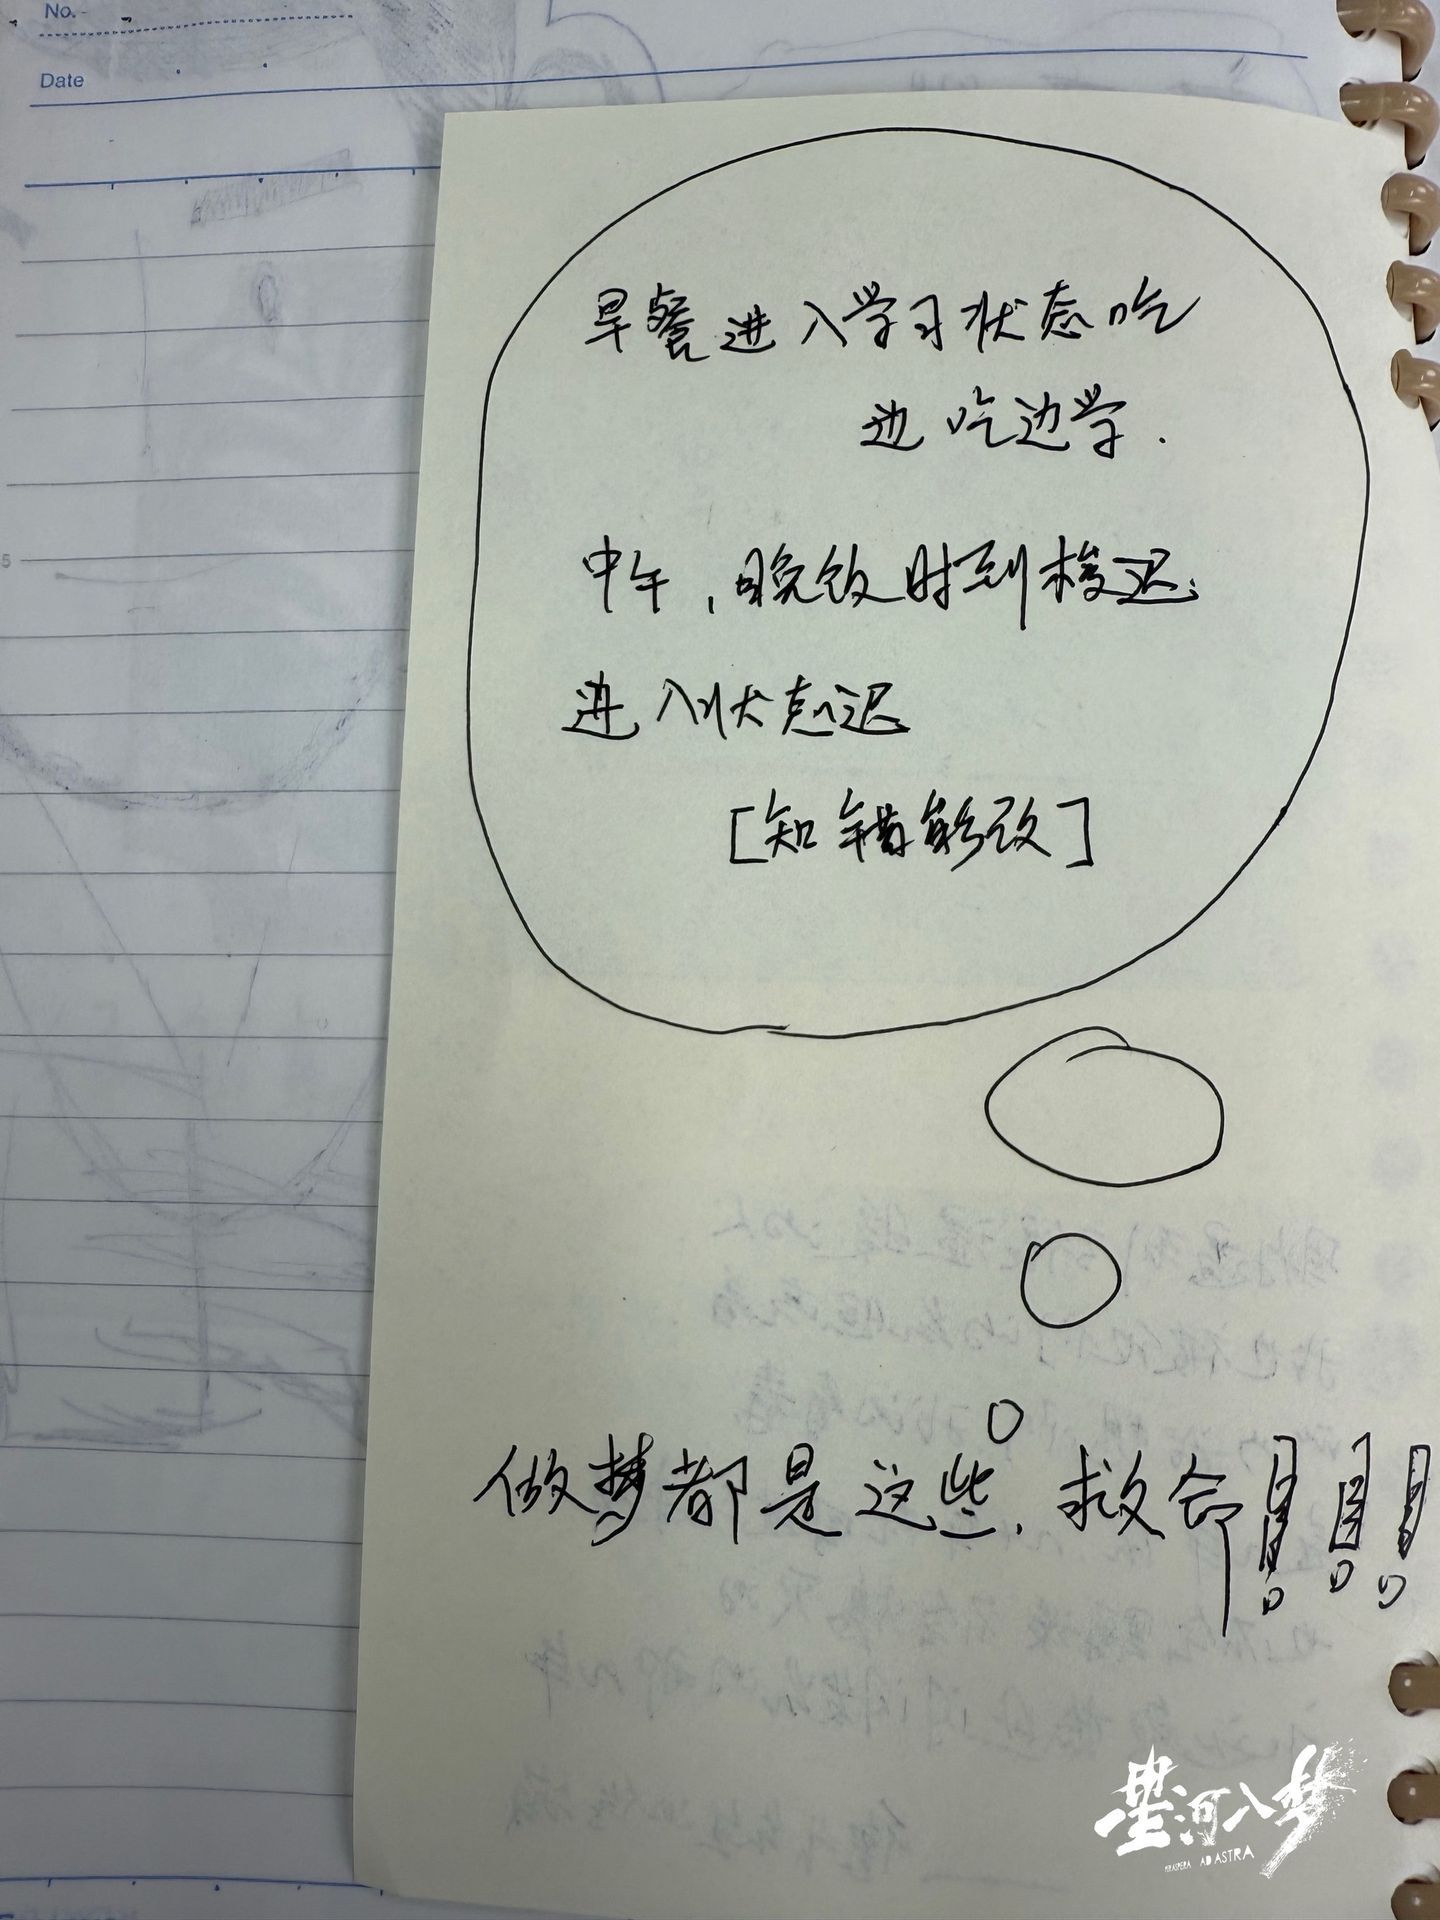 No.
Date
早餐进入学习状态吃
边吃边学.
中午,晚饭时到校迟
进入状态迟
[知错能改]
做梦都是这些,救命!!!
星河入梦
PER ASPERA AD ASTRA